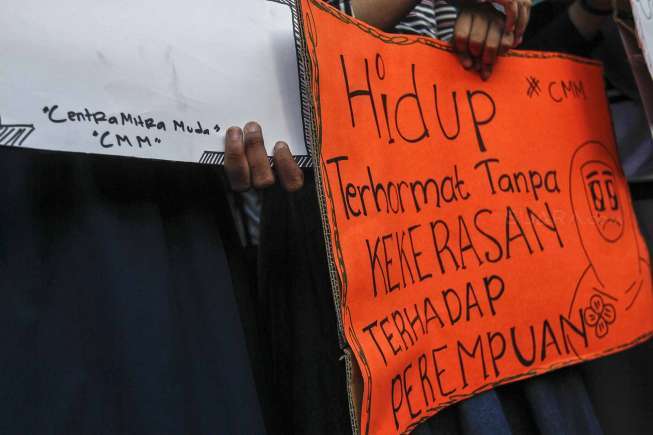 "Centra Mitra Muda"
"CMM"
Hidup
#CMM
Terhormat Tanpa
KEKERASAN
TERHADAP
PEREMPUAN